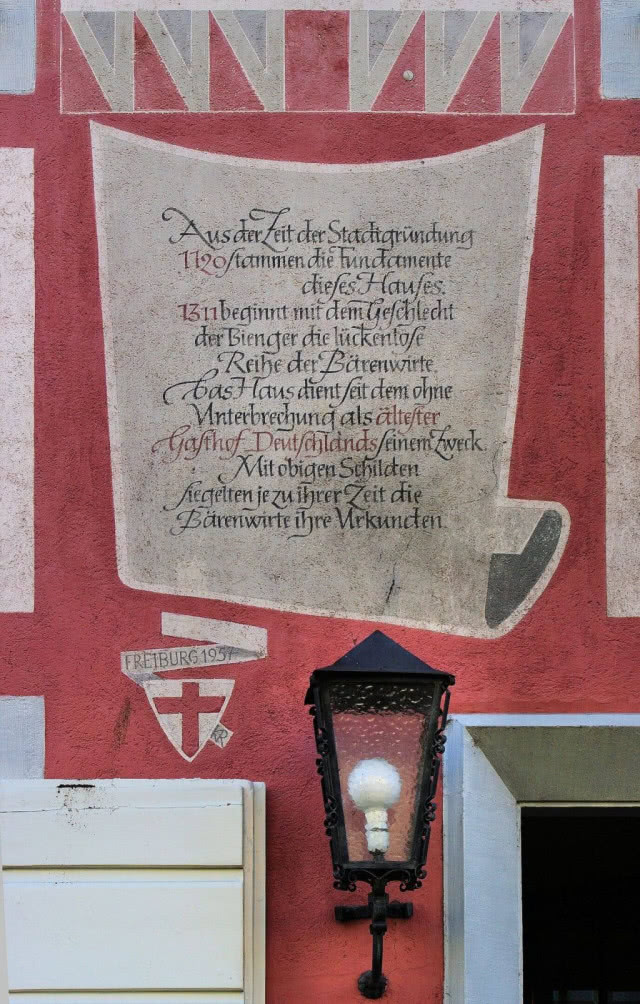 Aus der Zeit der Stadtgründung
1120 stammen die Fundamente
dieses Hauses.
1311 beginnt mit dem Geschlecht
der Bienger die lückenlose
Reihe der Bärenwirte.
Das Haus dient seit dem ohne
Unterbrechung als ältester
Gasthof Deutschlands seinem Zweck.
Mit obigen Schilden
siegelten je zu ihrer Zeit die
Bärenwirte ihre Urkunden.
FREIBURG 1957